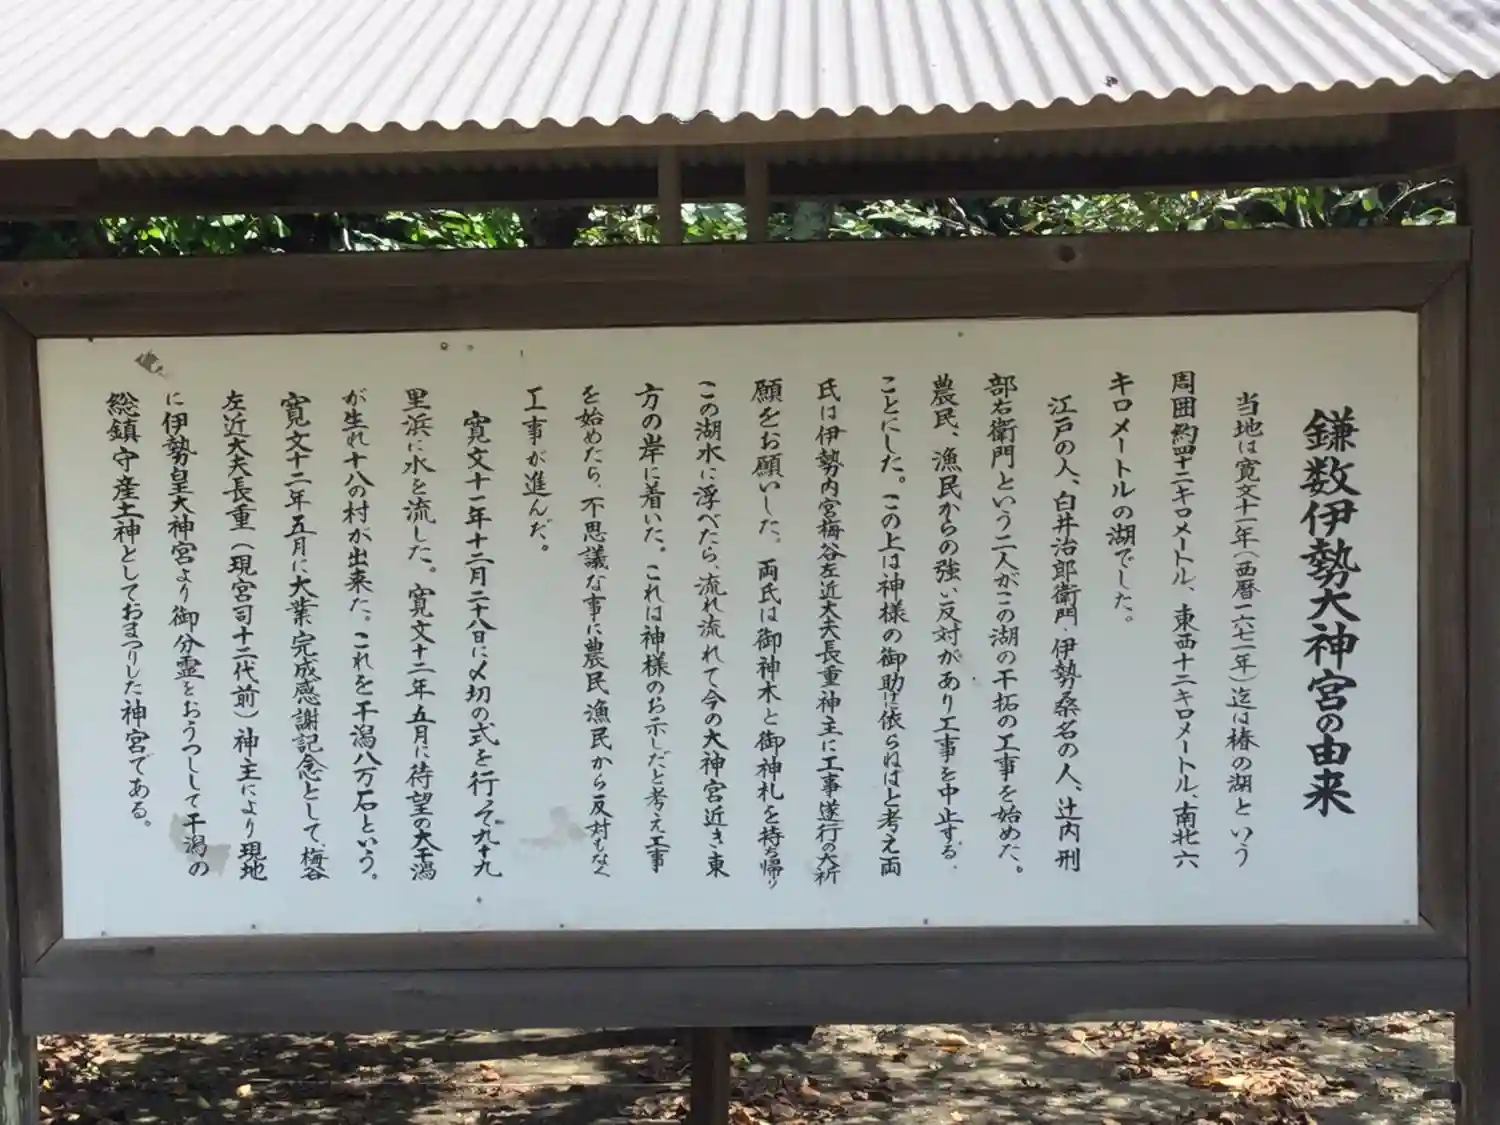 鎌数伊勢大神宮の由来
当地は寛文十一年(西暦一六七一年)迄は椿の湖という
周囲約四十二キロメートル、東西十二キロメートル、南北六
キロメートルの湖でした。
江戸の人、白井治郎衛門・伊勢桑名の人、辻内刑
部右衛門という二人がこの湖の干拓の工事を始めた。
農民、漁民からの強い反対があり工事を中止する
ことにした。この上は神様の御助に依らねばと考え両
氏は伊勢内宮梅谷左近大夫長重神主に工事遂行の大祈
願をお願いした。両氏は御神木と御神札を持ち帰り
この湖水に浮べたら、流れ流れて今の大神宮近き東
方の岸に着いた。これは神様のお示しだと考え工事
を始めたら、不思議な事に農民漁民から反対もなく
工事が進んだ。
寛文十一年十二月二十八日に〆切の式を行って九十九
里浜に水を流した。寛文十二年五月に待望の大干潟
が生れ十八の村が出来た。これを干潟八万石という。
寛文十二年五月に大業完成感謝記念として、梅谷
左近大夫長重(現宮司十二代前)神主により現地
に伊勢皇大神宮より御分霊をおうつしして干潟の
総鎮守産土神としておまつりした神宮である。